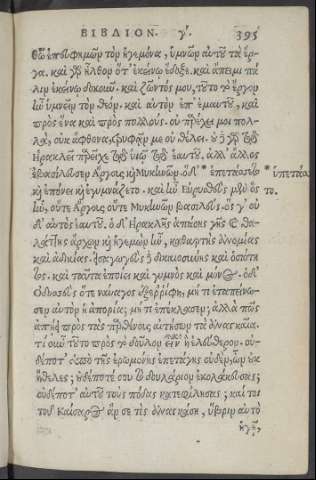 ΒΙΒΛΙΟΝ. γ´. 395
θῶ ἐπευφημῶν τὸν ἡγεμόνα, ὑμνῶν αὐτοῦ τὰ ἔρ-
γα. καὶ γὸ ἦλθον ὅτ' ἐκείνῳ ἔδοξε. καὶ ἄπειμι πά-
λιν ἐκείνῳ δοκοῦν. καὶ ζῶντός μου, τοῦτο τὸ ἔργον
ἦν ὑμνεῖν τὸν θεόν. καὶ αὐτὸν ἐπ' ἐμαυτοῦ, καὶ
πρὸς ἕνα καὶ πρὸς πολλούς. οὐ παρέχει μοι πολ-
λὰ, οὐκ ἄφθονα, τρυφᾷν με οὐ θέλει. οὐδὲ γὰρ τῷ
Ἡρακλεῖ παρεῖχε τῷ υἱῷ τῷ ἑαυτοῦ. ἀλλ' ἄλλος
ἐβασίλευσεν Ἄργους καὶ Μυκηνῶν. ὁ δ' * ἐπετάσσετο * ὑπετάσ
καὶ ἐπόνει καὶ ἐγυμνάζετο. καὶ ἦν Εὐρυσθεὺς μὲν ὃς το.
ἦν, οὔτε Ἄργους οὔτε Μυκηνῶν βασιλεὺς, ὅς γ' οὐ
δ' αὐτὸς ἑαυτοῦ. ὁ δ' Ἡρακλῆς ἁπάσης γῆς καὶ θα-
λάττης ἄρχων καὶ ἡγεμὼν ἦν, καθαρτὴς ἀδικίας
καὶ ἀνομίας. εἰσαγωγεὺς δὲ δικαιοσύνης καὶ ὁσιότη
τος. καὶ ταῦτα ἐποίει καὶ γυμνὸς καὶ μόνος. ὁ δ'
Ὀδυσσεὺς ὅτε ναυαγὸς ἐξερρίφη, μή τι ἐταπείνω-
σεν αὐτὸν ἡ ἀπορία; μή τι ἐπέκλασεν; ἀλλὰ πῶς
ἀπῄει πρὸς τὰς παρθένους αἰτήσων τὰ ἀναγκαῖα.
τί οὖν τοῦτο πρὸς τὸ δοῦλον εἶναι ἢ ἐλεύθερον. οὐ-
δέποτ' ὑπὸ τῆς ἐρωμένης ἐπετάγης οὐδὲν, ὧν οὐκ
ἤθελες; οὐδέποτέ σου τὸ δουλάριον ἐκολάκευσας;
οὐδέποτ' αὐτοῦ τοὺς πόδας κατεφίλησας; καί τοι
τοῦ Καίσαρος ἄν σέ τις ἀναγκάσῃ, ὕβριν αὐτὸ
ἡγῇ,